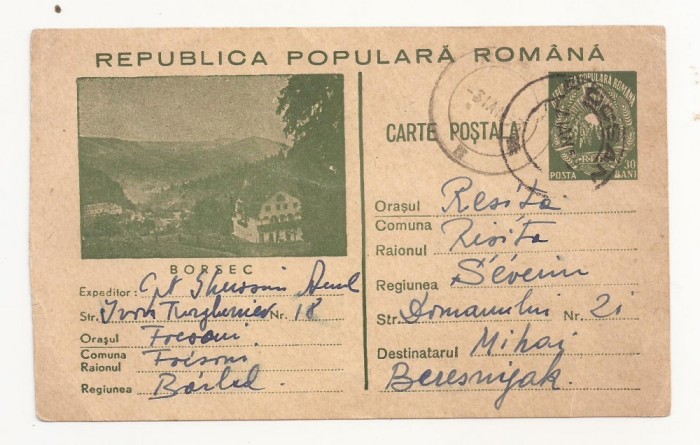 REPUBLICA POPULARĂ ROMÂNĂ
BORSEC
Expeditor:
Str. Ivan Turgheniev Nr. 18
Orașul Focsani
Comuna
Raionul Focsani
Regiunea Bârlad.
CARTE POȘTALĂ
REPUBLICA POPULARA ROMÂNĂ
R.P.R.
POSTA 30 BANI
Orașul Resita
Comuna
Raionul Resita
Regiunea Severin
Str. Domanului Nr. 21
Destinatarul Mihai
Beresnyak.